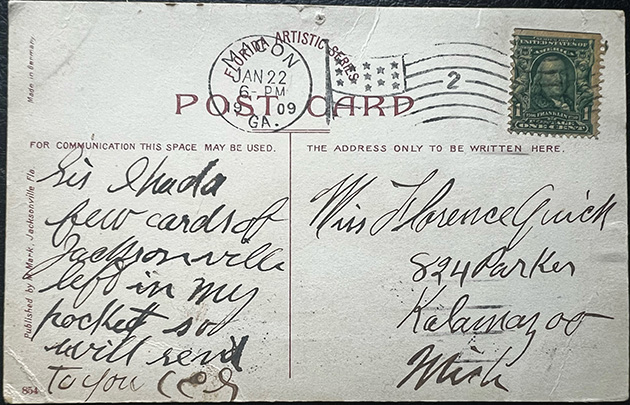 FLORIDA ARTISTIC SERIES
MACON
JAN 22
6 - PM
19 09
GA.
2
UNITED STATES OF
AMERICA
FRANKLIN
1 1
ONE CENT
POST CARD
FOR COMMUNICATION THIS SPACE MAY BE USED.
THE ADDRESS ONLY TO BE WRITTEN HERE.
Sis I had a
few cards of
Jacksonville
left in my
pocket so
will send
to you
Miss Florence Quick
824 Parker
Kalamazoo
Mich
Made in Germany
Published by Mark, Jacksonville Fla
854